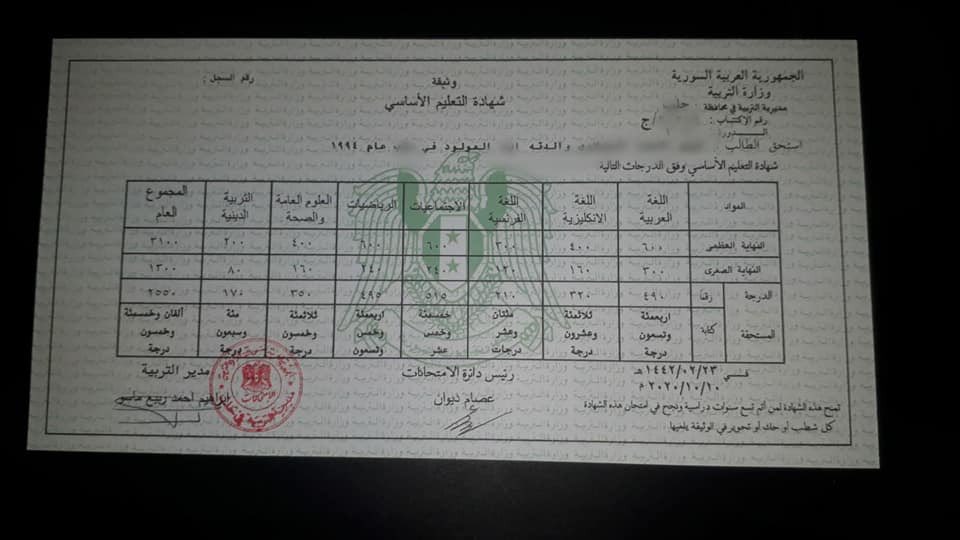 الجمهورية العربية السورية
وزارة التربية
مديرية التربية في محافظة : حلب
رقم الإكتتاب : /ج
الــدورة
وثيقة
شهادة التعليم الأساسي
رقم السجل :
استحق الطالب : والدته المولود في عام ١٩٩٤
شهادة التعليم الأساسي وفق الدرجات التالية
المواد اللغة العربية اللغة الانكليزية اللغة الفرنسية الاجتماعيات الرياضيات العلوم العامة والصحة التربية الدينية المجموع العام
النهاية العظمى ٦٠٠ ٤٠٠ ٣٠٠ ٦٠٠ ٦٠٠ ٤٠٠ ٢٠٠ ٣١٠٠
النهاية الصغرى ٣٠٠ ١٦٠ ١٢٠ ٢٤٠ ٢٤٠ ١٦٠ ٨٠ ١٣٠٠
الدرجة المستحقة رقماً ٤٩٠ ٣٢٠ ٢١٠ ٥١٥ ٤٩٥ ٣٥٠ ١٧٠ ٢٥٥٠
كتابة اربعمئة وتسعون درجة ثلاثمئة وعشرون درجة مئتان وعشر درجات خمسمئة وخمس عشر اربعمئة وخمس وتسعون ثلاثمئة وخمسون درجة مئة وسبعون درجة ألفان وخمسمئة وخمسون درجة
في ١٤٤٢/٠٢/٢٣ هـ
٢٠٢٠/١٠/١٠ م
رئيس دائرة الامتحانات
عصام ديوان
مدير التربية
ابراهيم احمد ربيع ماسو
تمنح هذه الشهادة لمن أتم تسع سنوات دراسية ونجح في امتحان هذه الشهادة
كل شطب أو حك أو تحوير في الوثيقة يلغيها.